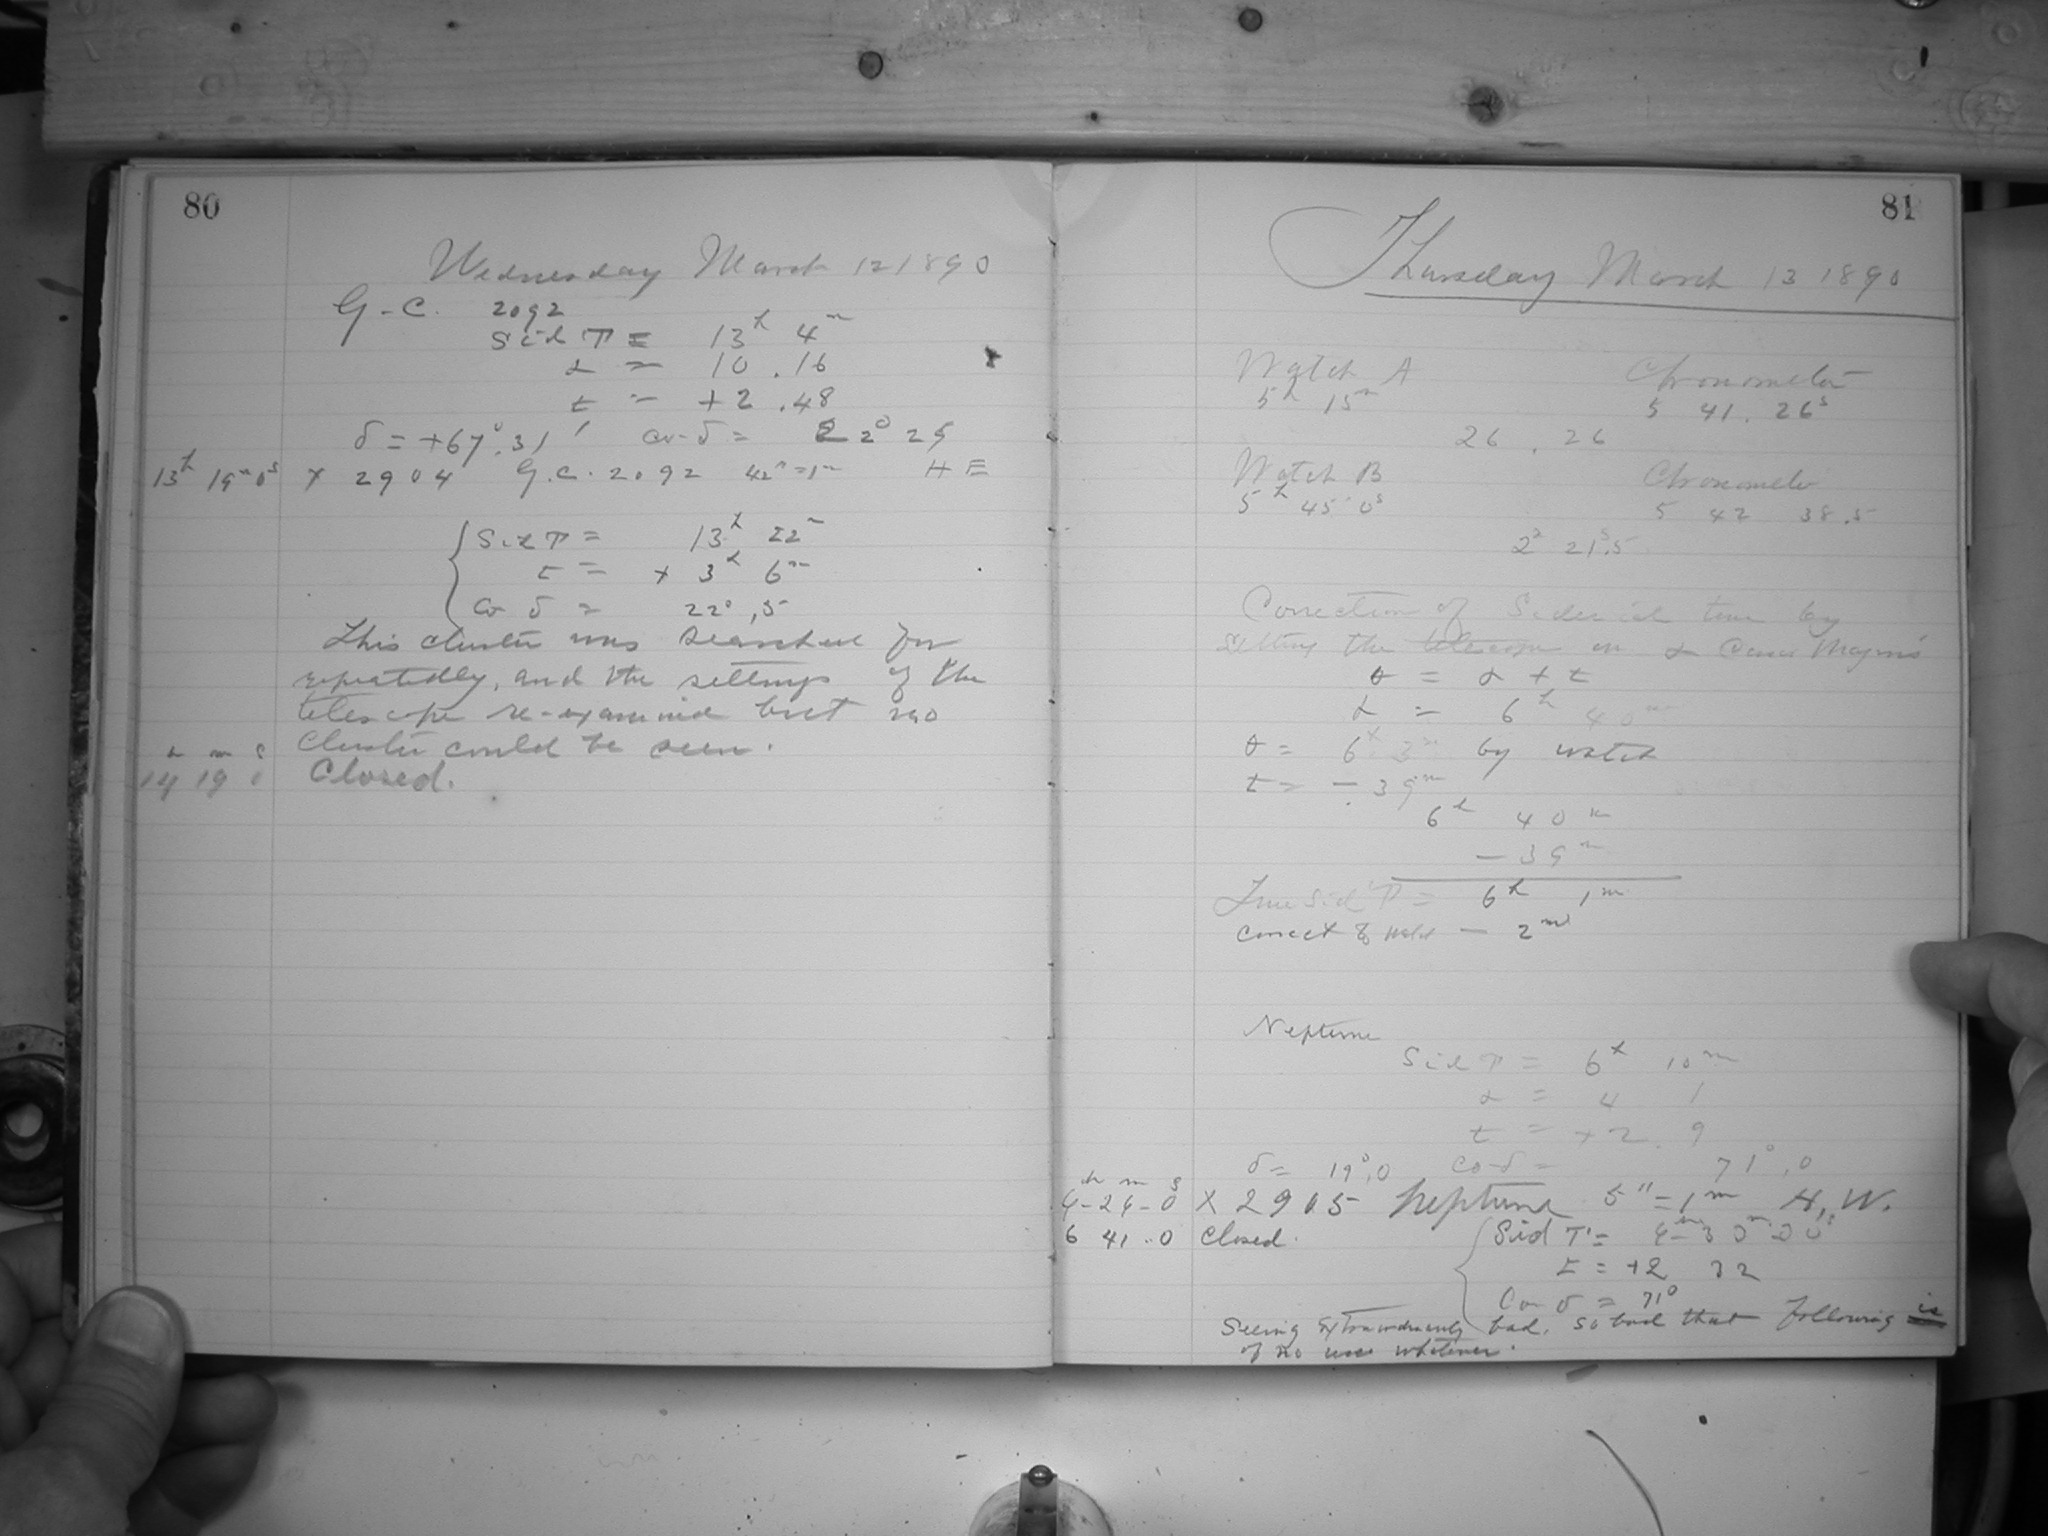 80
Wednesday March 12 1890
G.C. 2092
Sid T = 13h 4m
α = 10.16
t = +2.48
δ = +67°.31' co-δ = 22° 29
13h 19m 0s X 2904 G.C. 2092 42"=1m H E
Sid T = 13h 22m
t = + 3h 6m
Co δ = 22°,5
This cluster was searched for
repeatedly, and the settings of the
telescope re-examined but no
cluster could be seen.
h m s
14 19 0 Closed.
81
Thursday March 13 1890
Watch A Chronometer
5h 15m 5 41. 26s
26 . 26
Watch B Chronometer
5h 45m 0s 5 42 38.5
2m 21s.5
Correction of Sidereal time by
setting the telescope on α Canis Majoris
θ = α + t
α = 6h 40m
θ = 6h 3m by watch
t = -.39m
6h 40m
- 39m
True Sid T = 6h 1m
Correct to watch - 2m
Neptune
Sid T = 6h 10m
α = 4 1
t = +2. 9
δ = 19°,0 co-δ = 71°,0
h m s
6-26-0 X 2905 Neptune 5"=1m H.W.
6 41..0 Closed.
Sid T = 6h 30m 00s
t = +2 32
Co δ = 71°
Seeing extraordinarily bad. so bad that following is
of no use whatever.